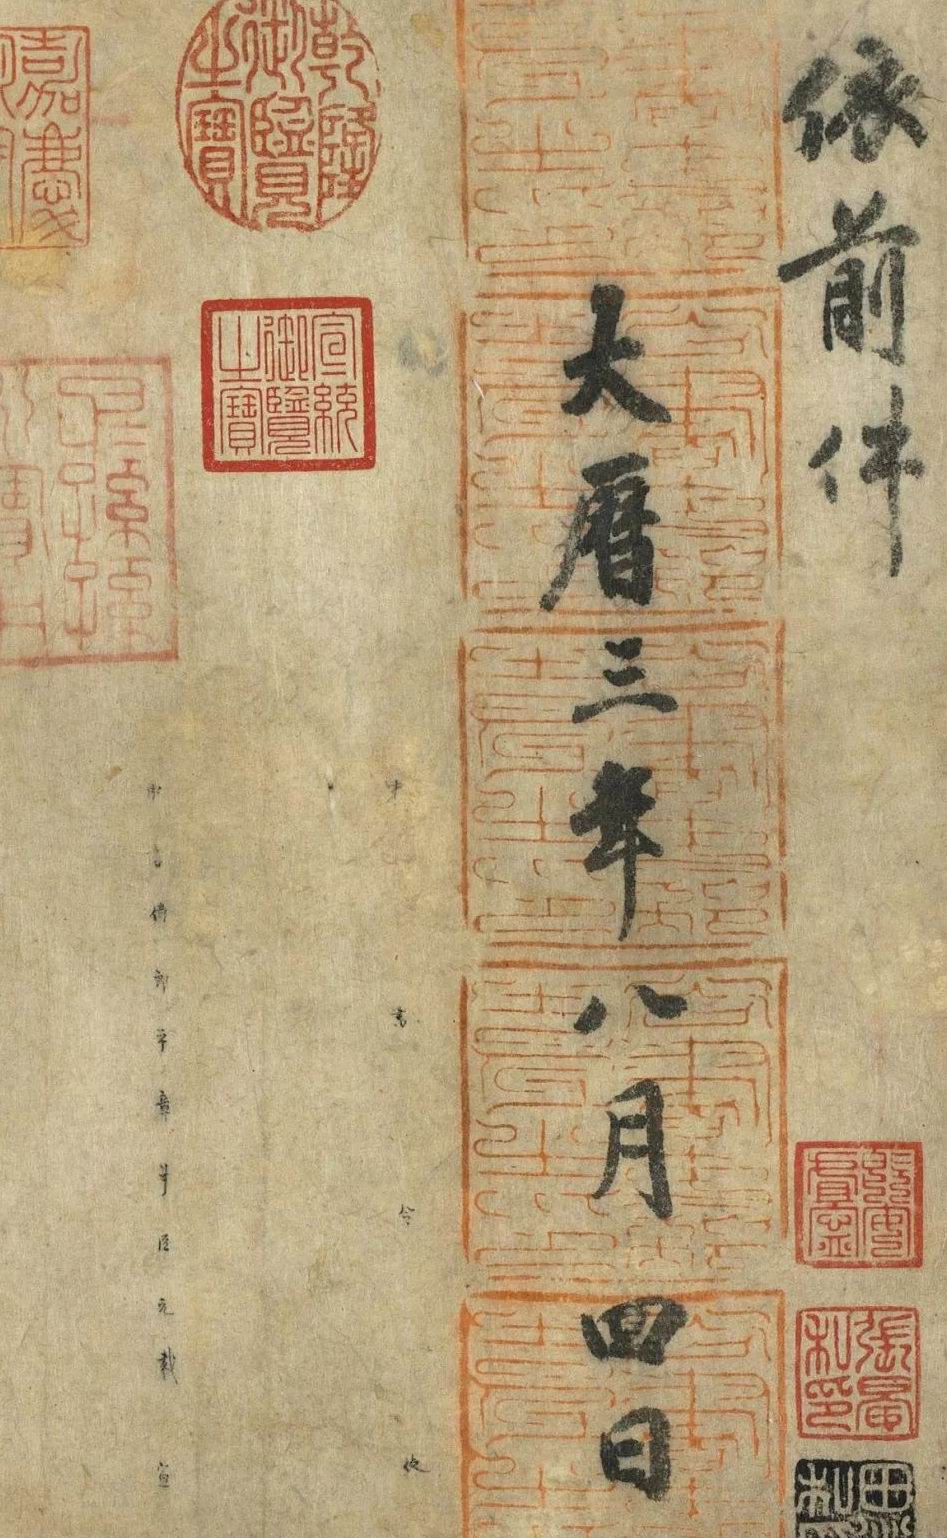 依前件
大曆三年八月四日
張晏私印
中書令使
乾隆御覽之寶
宣統御覽之寶
中書侍郎平章事臣元載宣
嘉慶